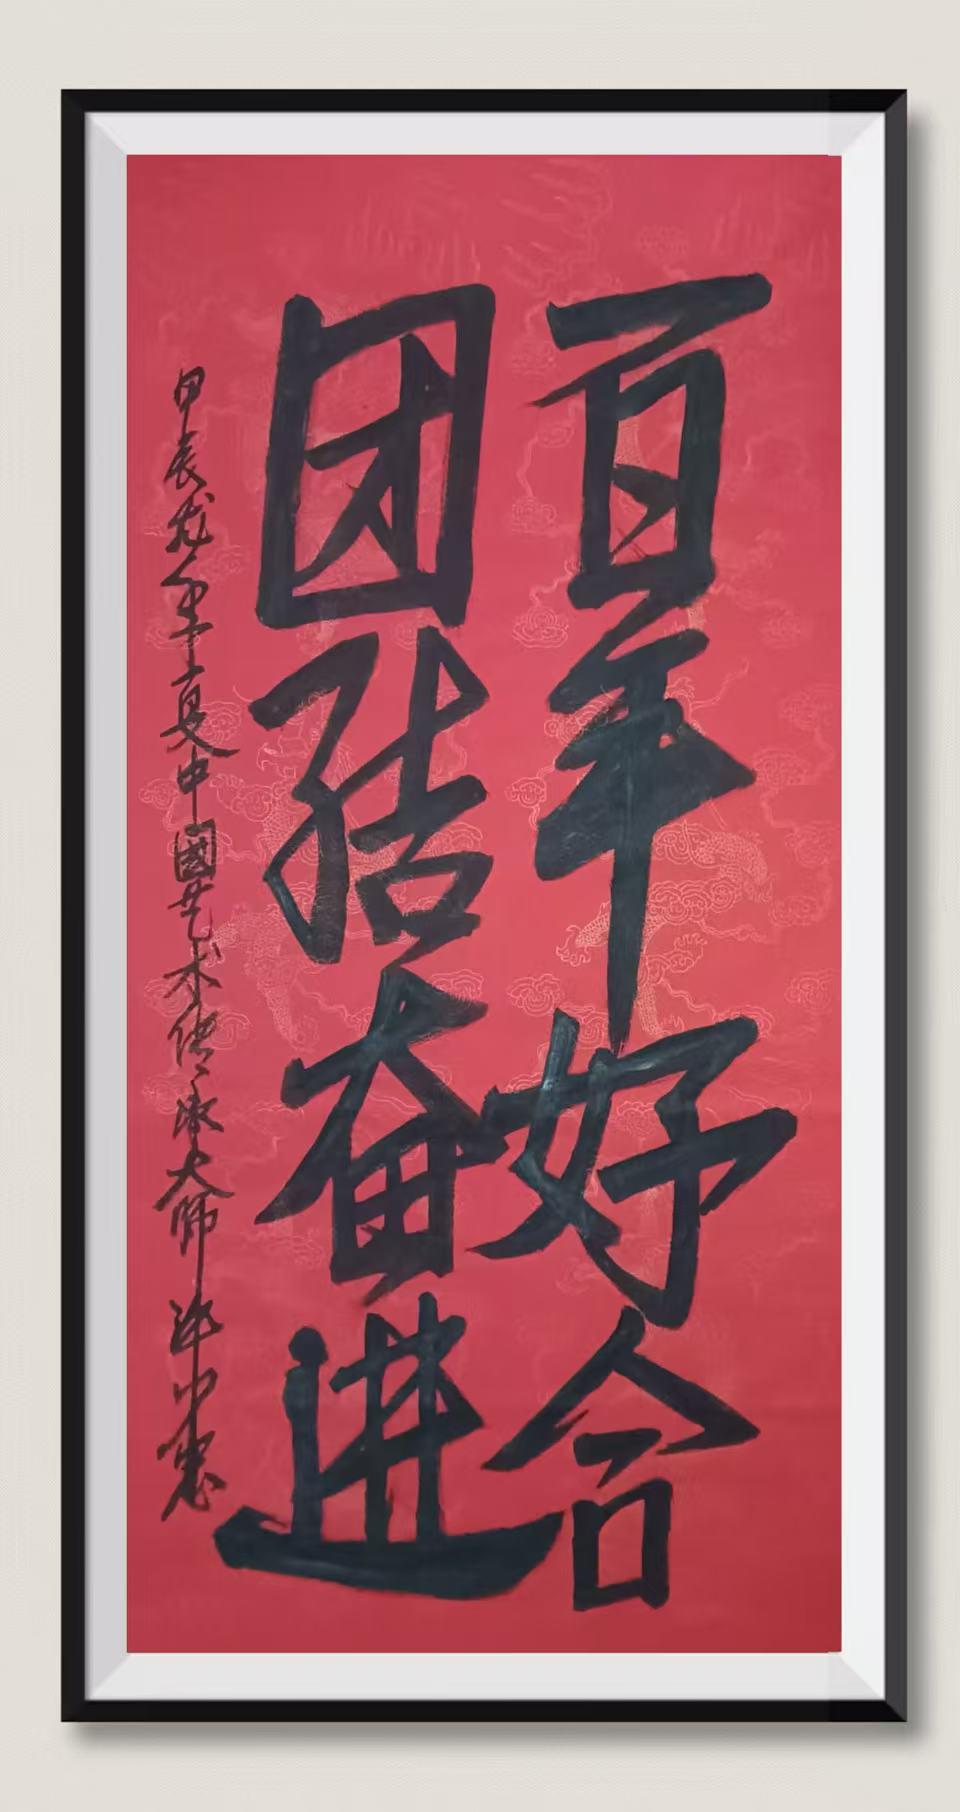 百年好合
团结奋进
甲辰龙年夏中國艺术传承大师